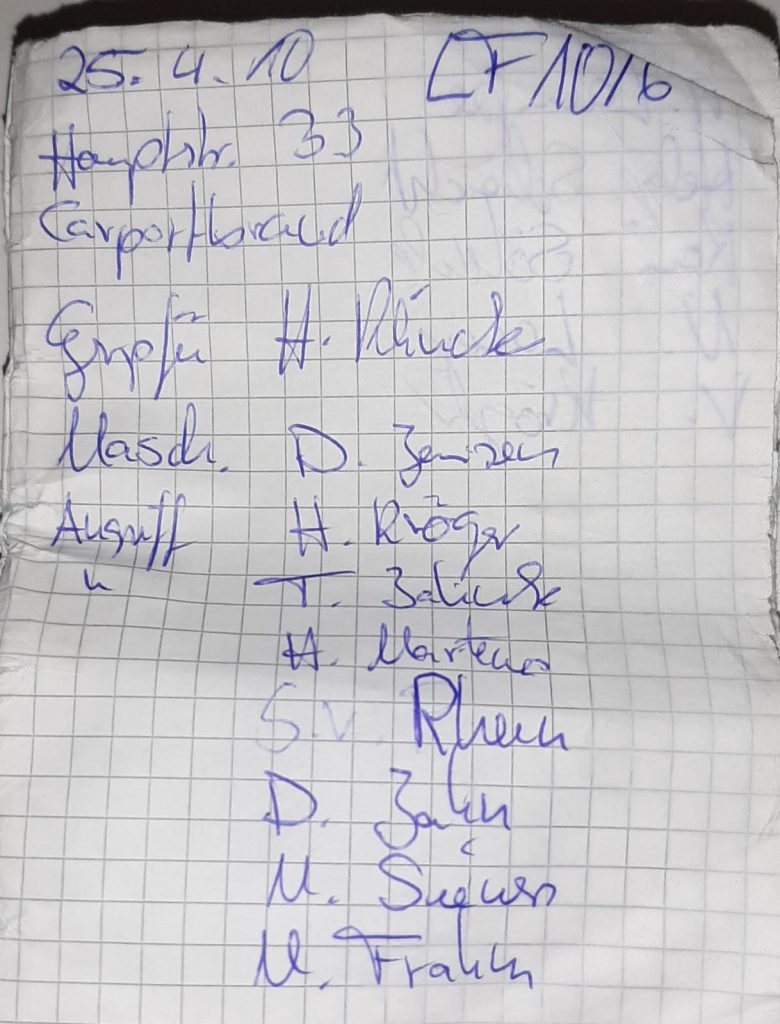 25. 4. 10 LF10/6
Hauptstr. 33
Carportbrand
Grupfü H.
Masch. D. Jensen
Angriff H. Kröger
" T.
H. Martens
S. v. Rhein
D. Jahn
M. Siewers
M. Frahm